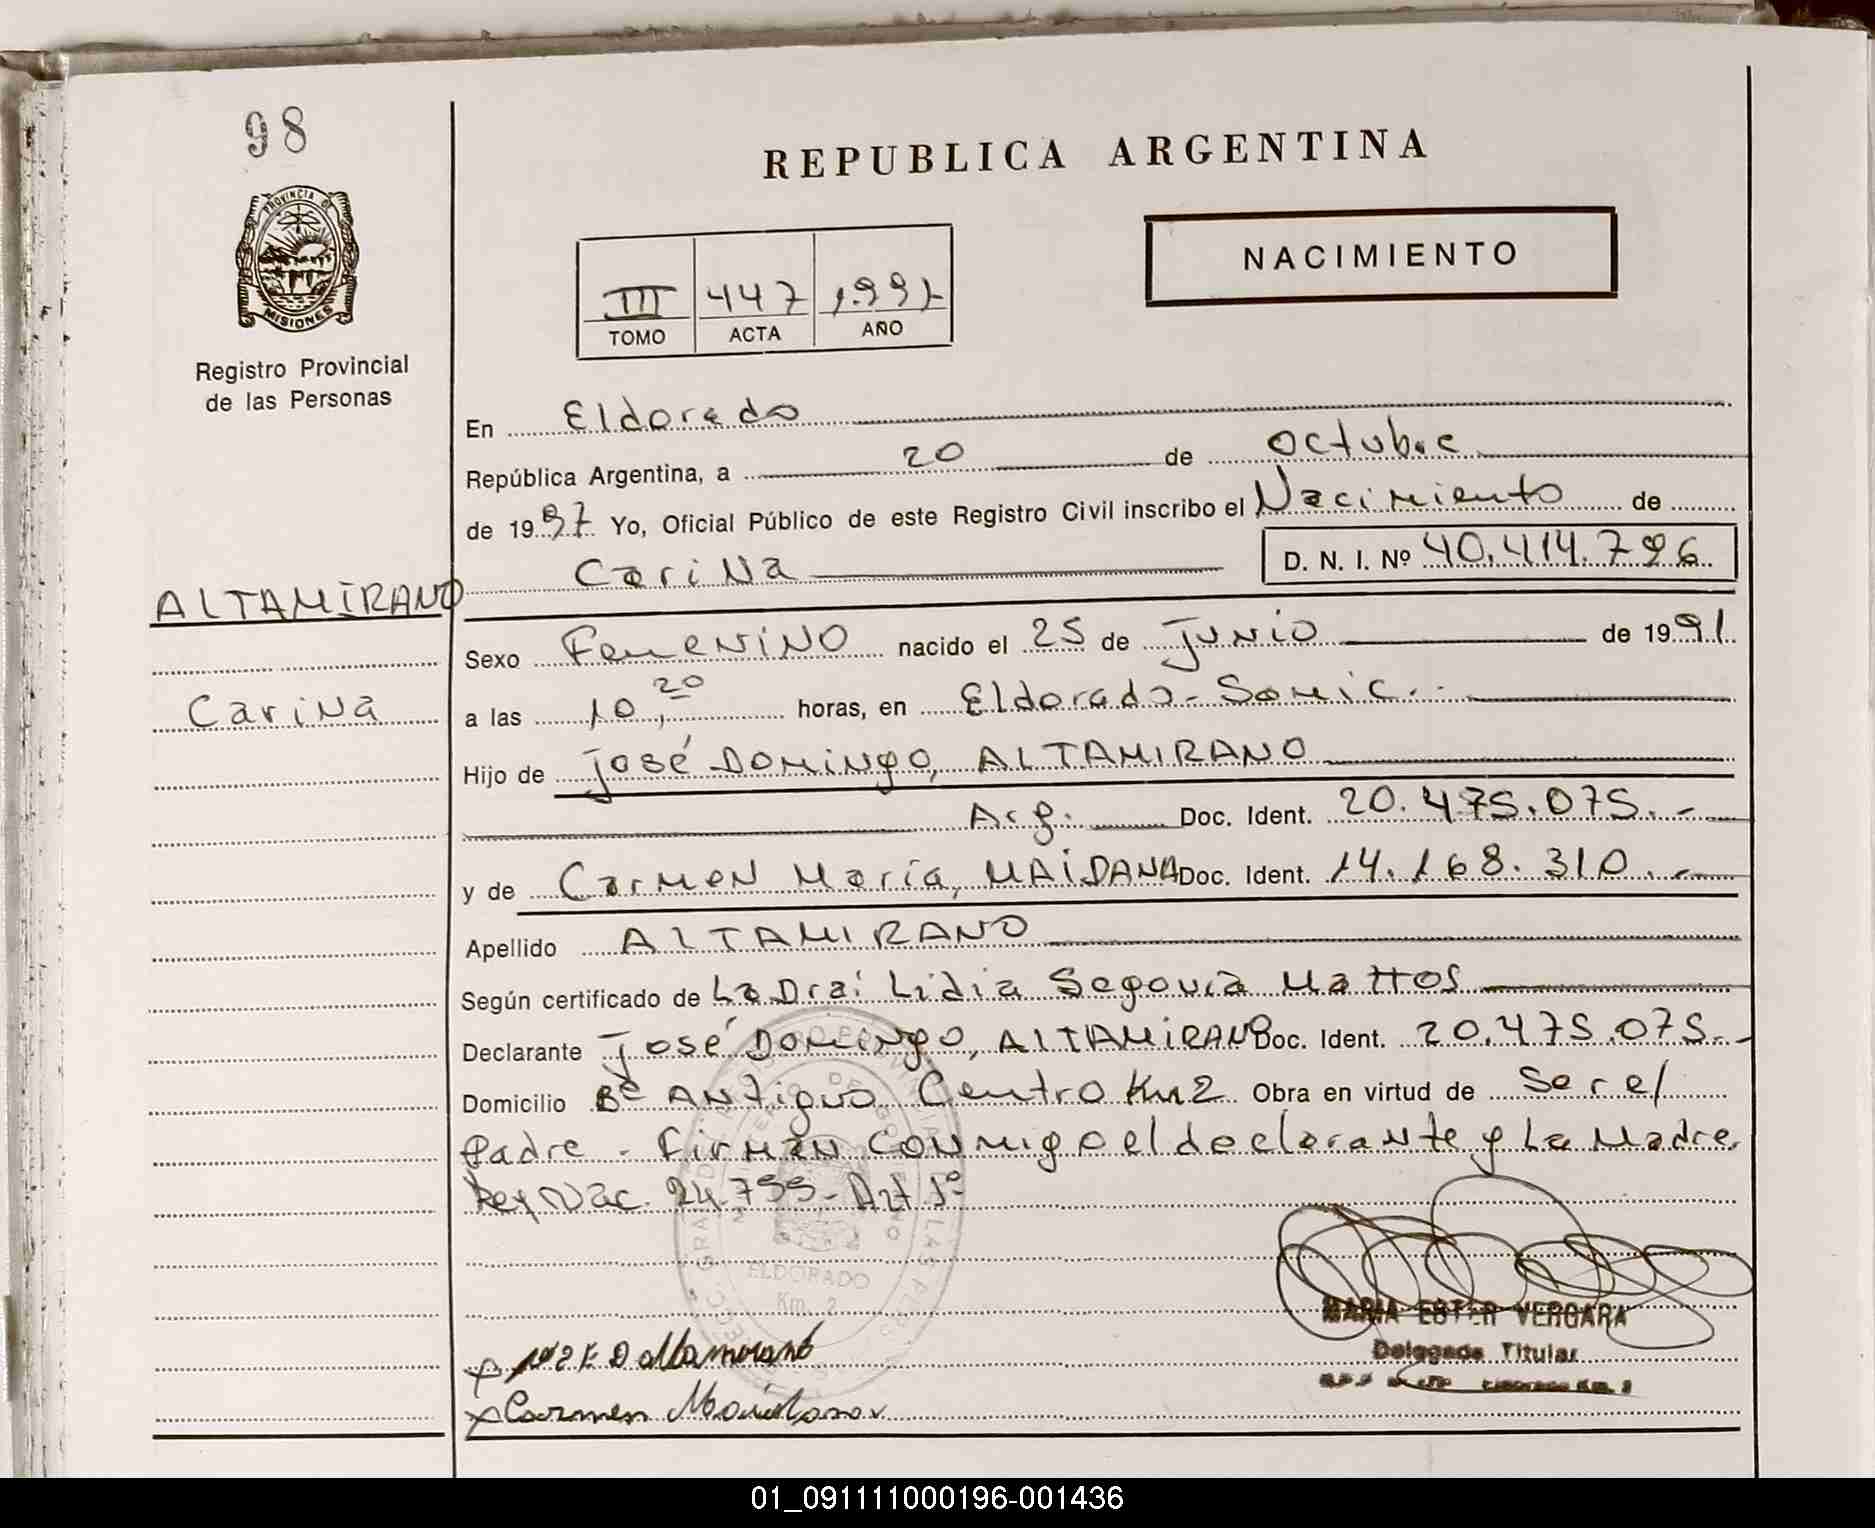 98
REPUBLICA ARGENTINA
PROVINCIA DE
MISIONES
Registro Provincial
de las Personas
NACIMIENTO
III 447 1.997
TOMO ACTA AÑO
En Eldorado
República Argentina, a 20 de Octubre
de 1997 Yo, Oficial Público de este Registro Civil inscribo el Nacimiento de
Carina D. N. I. Nº 40.414.796.
ALTAMIRANO
Carina
Sexo Femenino nacido el 25 de Junio de 1991.
a las 10,20 horas, en Eldorado - Samic.
Hijo de José Domingo, ALTAMIRANO
Arg. Doc. Ident. 20.475.075.-
y de Carmen María, MAIDANA Doc. Ident. 14.168.310.-
Apellido ALTAMIRANO
Según certificado de La Dra: Lidia Segovia Mattos
Declarante José Domingo, ALTAMIRANO Doc. Ident. 20.475.075.-
Domicilio Bº Antiguo Centro Km 2 Obra en virtud de Ser el
Padre - Firman conmigo el declarante y La Madre.
Ley Nac. 24.755 - Art 1º
ELDORADO
Km. 2
MARIA ESTER VERGARA
Delegada Titular
Eldorado Km. 2
x D Altamirano
x Carmen Maidana
01_091111000196-001436